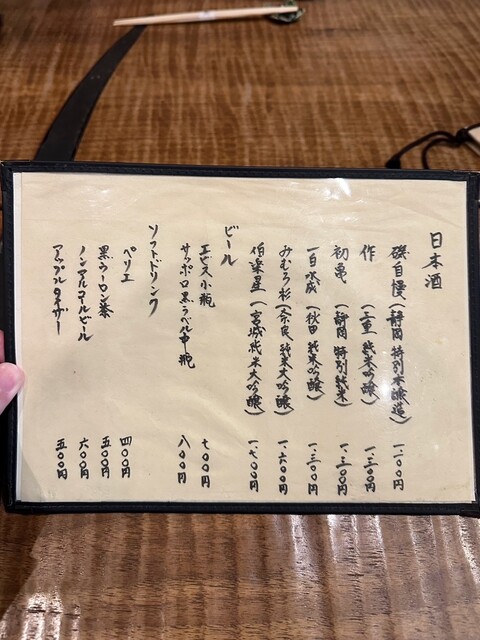 日本酒
磯自慢(静岡 特別本醸造) 一、二〇〇円
作 (三重 純米吟醸) 一、三〇〇円
初亀 (静岡 特別純米) 一、三〇〇円
一白水成 (秋田 純米吟醸) 一、三〇〇円
みむろ杉 (奈良 純米大吟醸) 一、六〇〇円
伯楽星 (宮城 純米大吟醸) 一、七〇〇円
ビール
エビス小瓶 七〇〇円
サッポロ黒ラベル中瓶 八〇〇円
ソフトドリンク
ペリエ 四〇〇円
黒ウーロン茶 五〇〇円
ノンアルコールビール 六〇〇円
アップルタイザー 五〇〇円